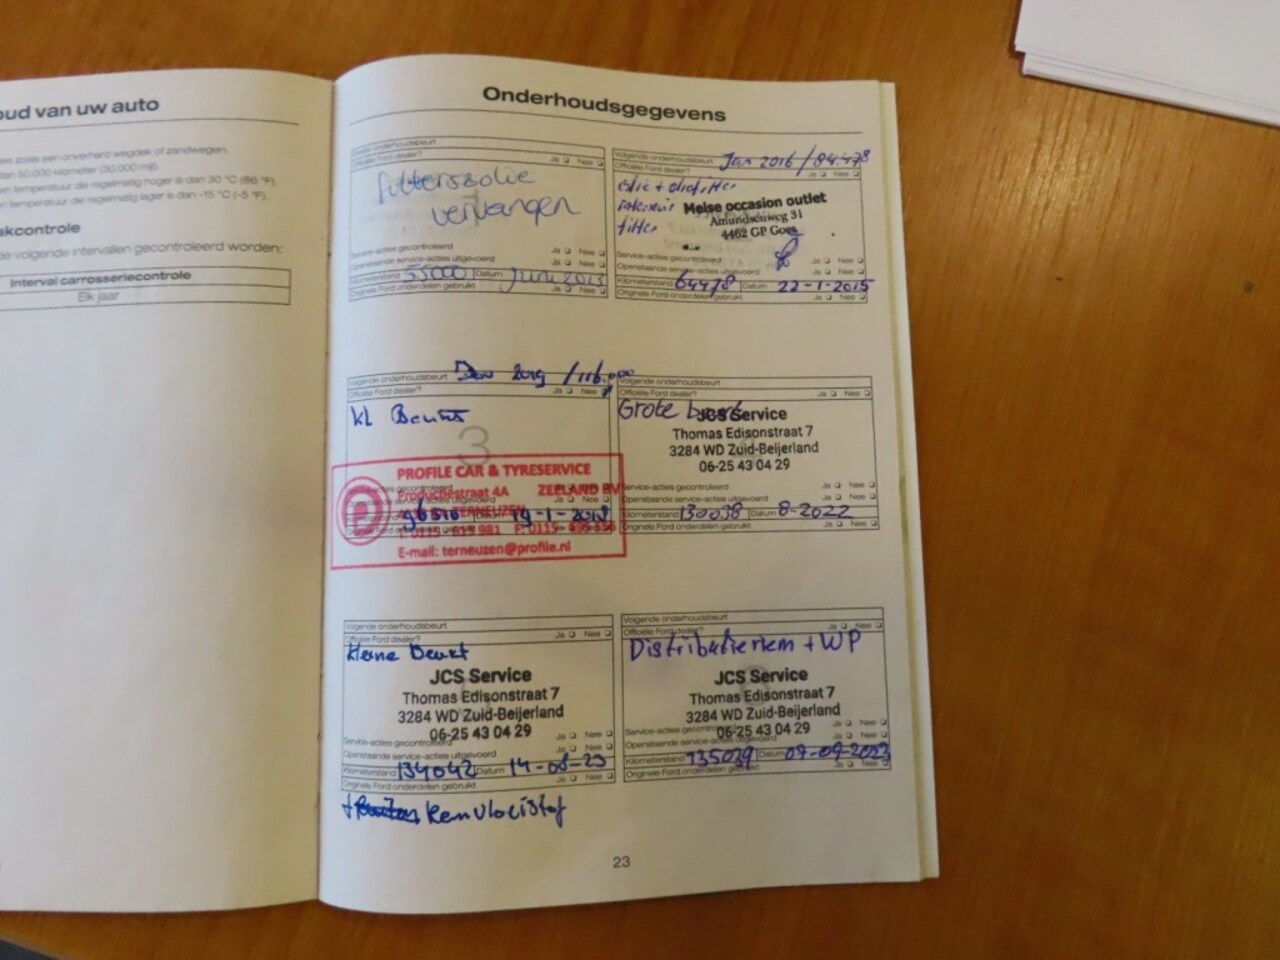 oud van uw auto
es zoals een onverhard wegdek of zandwegen.
dan 50 000 kilometer (30 000 mijl).
en temperatuur die regelmatig hoger is dan 30 °C (86 °F).
n temperatuur die regelmatig lager is dan -15 °C (-5 °F).
akcontrole
de volgende intervallen gecontroleerd worden:
Interval carrosseriecontrole
Elk jaar
Onderhoudsgegevens
Volgende onderhoudsbeurt
Officiële Ford dealer? Ja Nee
filters+olie
vervangen
Service-acties gecontroleerd Ja Nee
Openstaande service-acties uitgevoerd Ja Nee
Kilometerstand 55000 Datum Juni 2013
Originele Ford onderdelen gebruikt Ja Nee
Volgende onderhoudsbeurt Jan 2016 / 84.478
Officiële Ford dealer? Ja Nee
olie + oliefilter
interieur
filter
Meise occasion outlet
Amundsenweg 31
4462 GP Goes
Service-acties gecontroleerd Ja Nee
Openstaande service-acties uitgevoerd Ja Nee
Kilometerstand 64478 Datum 22-1-2015
Originele Ford onderdelen gebruikt Ja Nee
Volgende onderhoudsbeurt 2019 /116.000
Officiële Ford dealer? Ja Nee
kl Beurt
3
PROFILE CAR & TYRESERVICE
Productiestraat 4A ZEELAND BV
TERNEUZEN
19-1-2018
E-mail: terneuzen@profile.nl
Volgende onderhoudsbeurt
Officiële Ford dealer? Ja Nee
Grote beurt
JCS Service
Thomas Edisonstraat 7
3284 WD Zuid-Beijerland
06-25 43 04 29
Service-acties gecontroleerd Ja Nee
Openstaande service-acties uitgevoerd Ja Nee
Kilometerstand 130038 Datum 8-2022
Originele Ford onderdelen gebruikt Ja Nee
Volgende onderhoudsbeurt
Officiële Ford dealer? Ja Nee
kleine Beurt
JCS Service
Thomas Edisonstraat 7
3284 WD Zuid-Beijerland
06-25 43 04 29
Service-acties gecontroleerd Ja Nee
Openstaande service-acties uitgevoerd Ja Nee
Kilometerstand 134042 Datum 14-08-23
Originele Ford onderdelen gebruikt Ja Nee
+ Remvloeistof
Volgende onderhoudsbeurt
Officiële Ford dealer? Ja Nee
Distributieriem + WP
JCS Service
Thomas Edisonstraat 7
3284 WD Zuid-Beijerland
06-25 43 04 29
Service-acties gecontroleerd Ja Nee
Openstaande service-acties uitgevoerd Ja Nee
Kilometerstand 135039 Datum 07-09-2023
Originele Ford onderdelen gebruikt Ja Nee
23